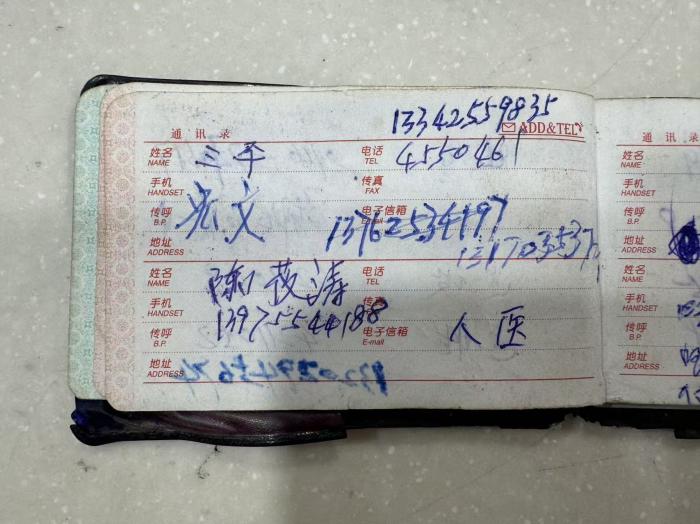 13342559835
通 讯 录 ADD&TEL
姓名 NAME 三平 电话 TEL 4550461
手机 HANDSET 传真 FAX
传呼 B.P. 光文 电子信箱 13762534197
地址 ADDRESS
姓名 NAME 陈 涛 电话 TEL
手机 HANDSET 13975544188 传真
传呼 B.P. 电子信箱 E-mail 人医
地址 ADDRESS
通 讯 录
姓名 NAME
手机 HANDSET
传呼 B.P.
地址 ADDRESS
姓名 NAME
手机 HANDSET
传呼 B.P.
地址 ADDRESS